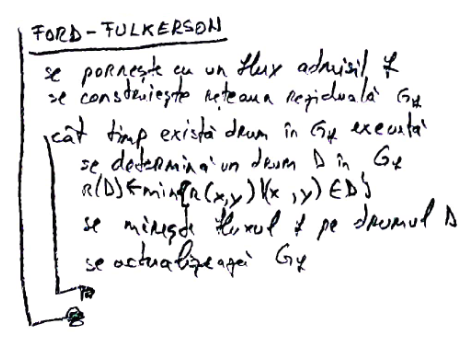 FORD-FULKERSON
se pornește cu un flux admisil f
se construiește rețeaua reziduală Gf
cât timp există drum în Gf execută
se determină un drum D în Gf
R(D)←min{R(x,y)|(x,y)∈D}
se mărește fluxul f pe drumul D
se actualizează Gf